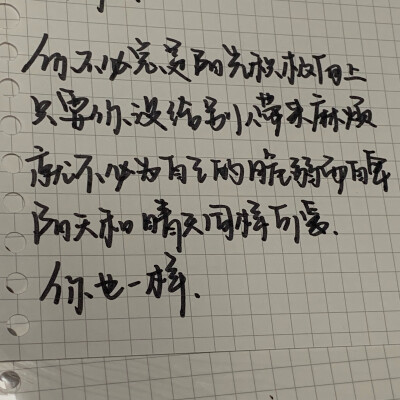 你不必完美阳光积极向上
只要你没给别人带来麻烦
就不必为自己的脆弱而自责
阴天和晴天同样可爱.
你也一样.